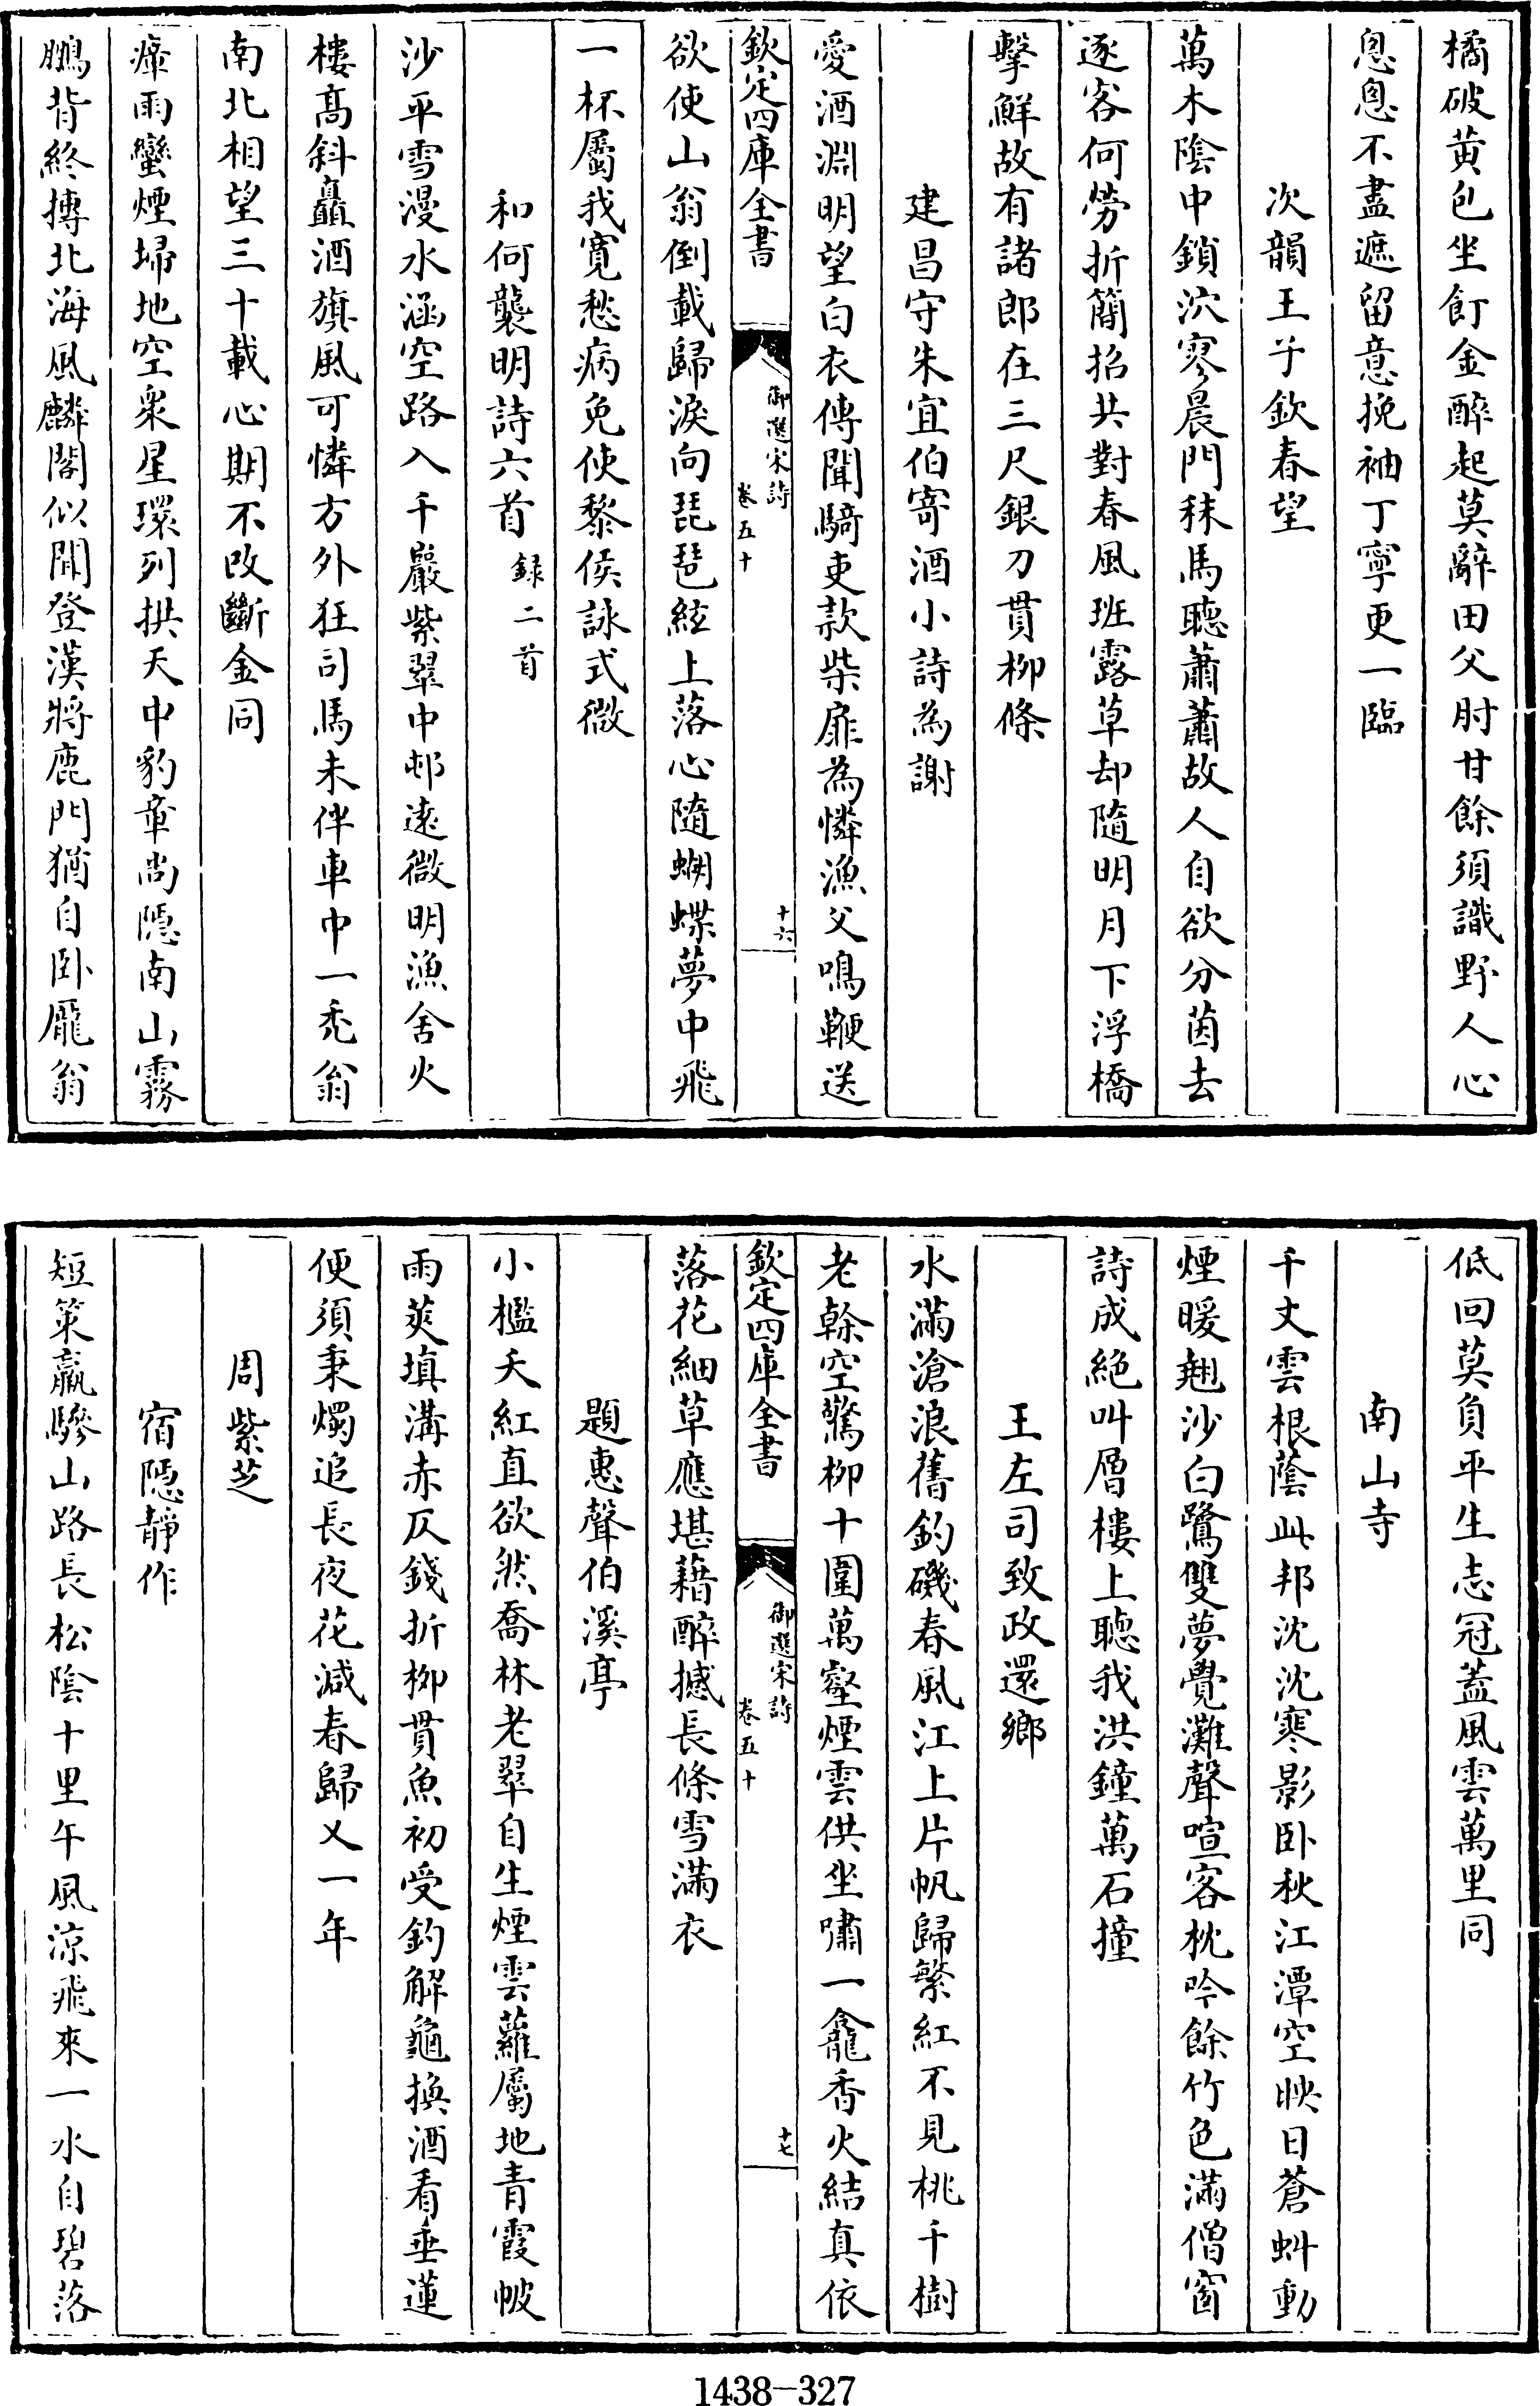 橘破黄包坐飣金醉起莫辭田父肘甘餘須識野人心
悤悤不盡遮留意挽袖丁寧更一臨
次韻王子欽春望
萬木陰中鎖泬寥晨門秣馬聽蕭蕭故人自欲分茵去
逐客何勞折簡招共對春風班露草却隨明月下浮橋
擊鮮故有諸郎在三尺銀刀貫柳條
建昌守朱宜伯寄酒小詩為謝
愛酒淵明望白衣傳聞騎吏款柴扉為憐漁父鳴鞭送
欽定四庫全書
御選宋詩
卷五十
十六
欲使山翁倒載歸淚向琵琶絃上落心隨蝴蝶夢中飛
一杯屬我寛愁病免使黎侯詠式微
和何襲明詩六首 録二首
沙平雪漫水涵空路入千巖紫翠中邨遠微明漁舍火
樓髙斜矗酒旗風可憐方外狂司馬未伴車中一秃翁
南北相望三十載心期不改斷金同
瘴雨蠻煙埽地空衆星環列拱天中豹章尚隠南山霧
鵬背終摶北海風麟閣似聞登漢將鹿門猶自卧龎翁
低回莫負平生志冠葢風雲萬里同
南山寺
千丈雲根蔭此邦沈沈寒影卧秋江潭空映日蒼虯動
煙暖翹沙白鷺雙夢覺灘聲喧客枕吟餘竹色滿僧窗
詩成絶叫層樓上聽我洪鐘萬石撞
王左司致政還鄉
水滿滄浪舊釣磯春風江上片帆歸繁紅不見桃千樹
老榦空驚柳十圍萬壑煙雲供坐嘯一龕香火結真依
欽定四庫全書
御選宋詩
卷五十
十七
落花細草應堪藉醉撼長條雪滿衣
題惠聲伯溪亭
小檻夭紅直欲然喬林老翠自生煙雲蘿屬地青霞帔
雨莢填溝赤仄錢折柳貫魚初受釣解龜換酒看垂蓮
便須秉燭追長夜花減春歸又一年
周紫芝
宿隠靜作
短策羸驂山路長松陰十里午風涼飛來一水自碧落
1438-327